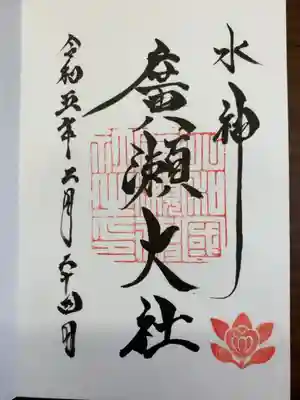 水神
廣瀬大社
令和五年六月二十四日